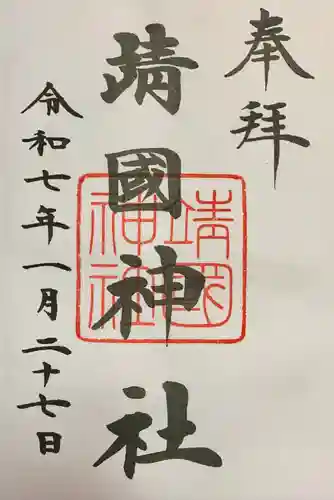 奉拝
靖國神社
靖国神社
令和七年一月二十七日